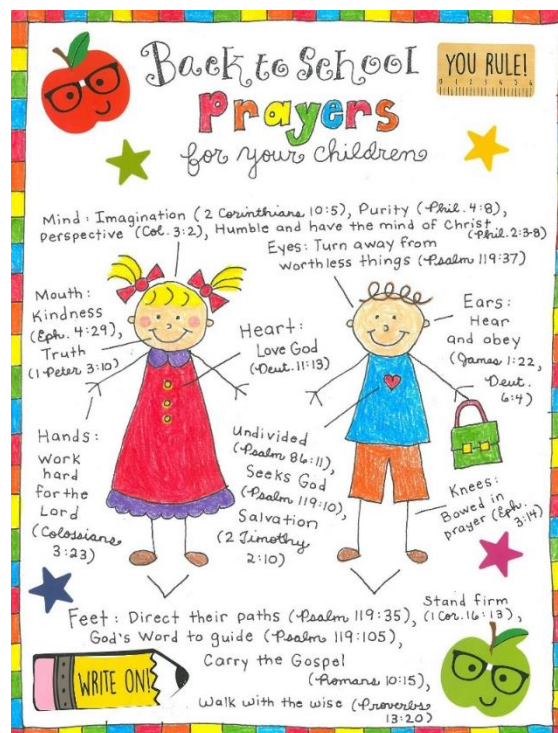 Back to School
YOU RULE!
0 1 2 3 4 5 6
Prayers
for your children
Mind: Imagination (2 Corinthians 10:5), Purity (Phil. 4:8),
perspective (Col. 3:2), Humble and have the mind of Christ
(Phil. 2:3-8)
Eyes: Turn away from
worthless things (Psalm 119:37)
Mouth:
Kindness
(Eph. 4:29),
Truth
(1 Peter 3:10)
Heart:
Love God
(Deut. 11:13)
Ears:
Hear
and obey
(James 1:22,
Deut.
6:4)
Hands:
work
hard
for the
Lord
(Colossians
3:23)
Undivided
(Psalm 86:11),
Seeks God
(Psalm 119:10),
Salvation
(2 Timothy
2:10)
Knees:
Bowed in
prayer (Eph.
3:14)
Feet: Direct their paths (Psalm 119:35),
Stand firm
(1 Cor. 16:13),
God's Word to guide (Psalm 119:105),
Carry the Gospel
(Romans 10:15),
Walk with the wise (Proverbs
13:20)
WRITE ON!